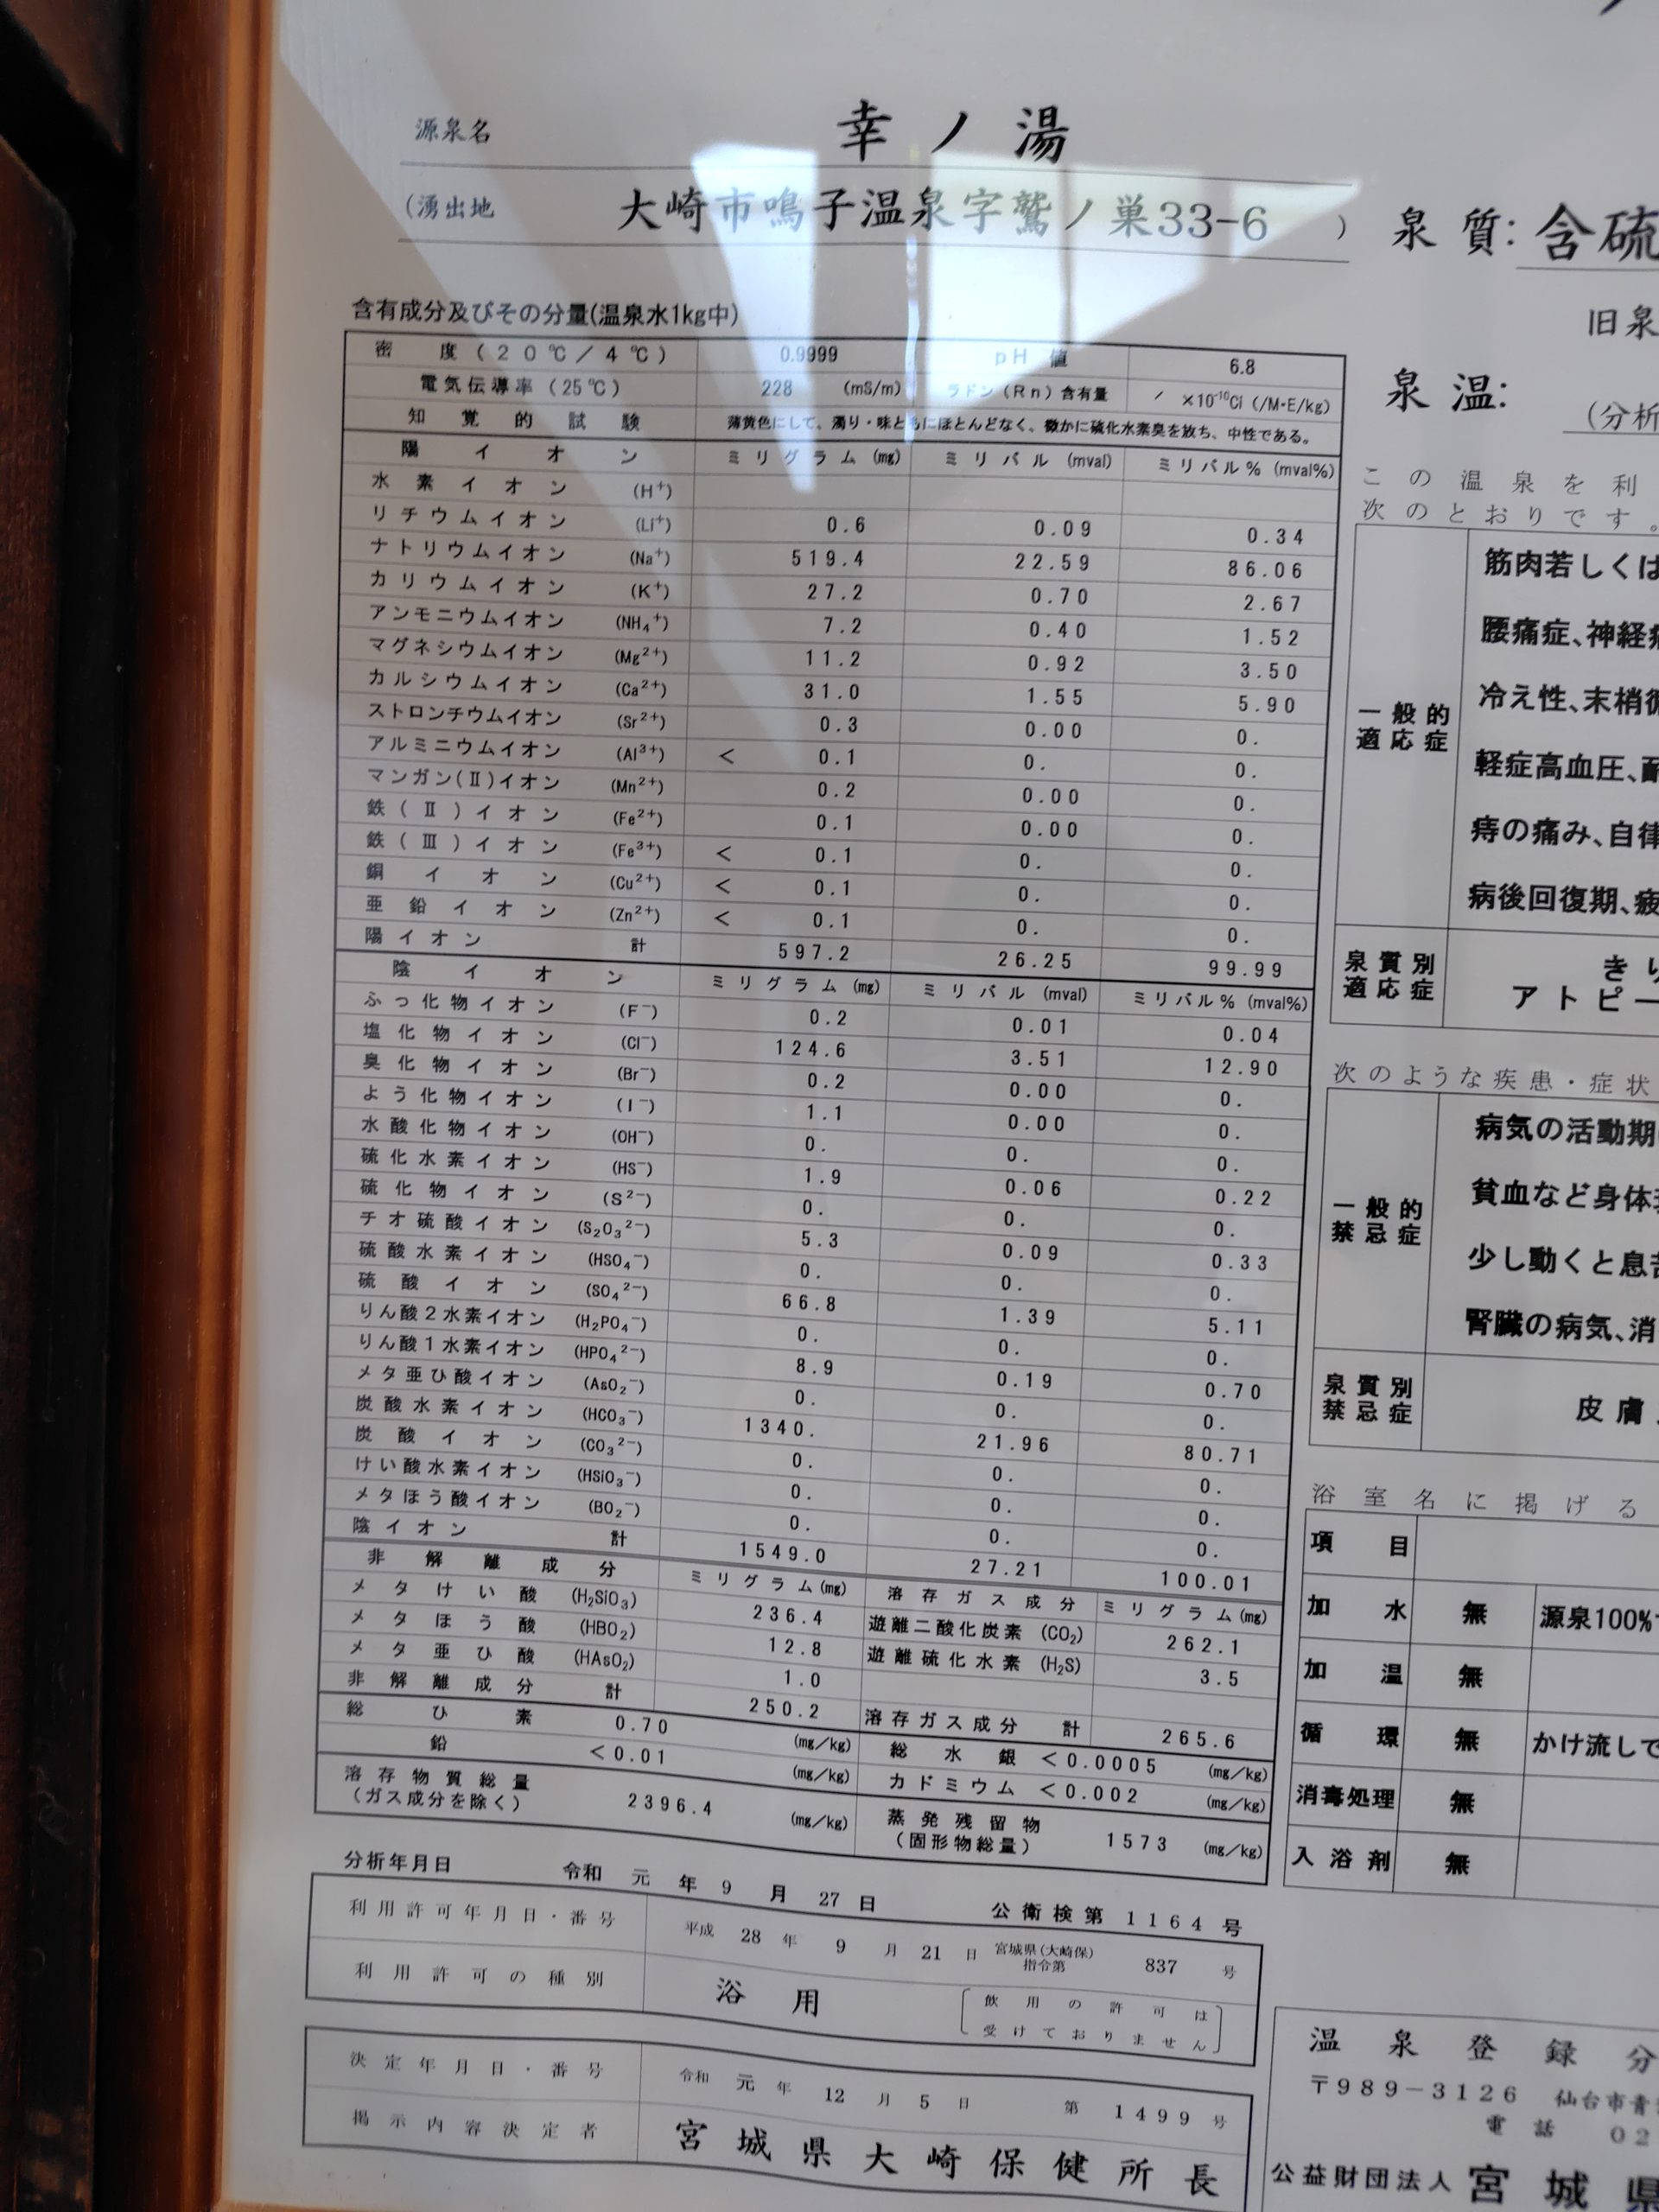 源泉名 幸ノ湯
(湧出地 大崎市鳴子温泉字鷲ノ巣33-6 )
含有成分及びその分量(温泉水1kg中)
密度(20℃/4℃) 0.9999 pH値 6.8
電気伝導率(25℃) 228 (mS/m) ラドン(Rn)含有量 / ×10⁻¹⁰Ci (/M・E/kg)
知覚的試験 薄黄色にして、濁り・味ともにほとんどなく、微かに硫化水素臭を放ち、中性である。
陽イオン ミリグラム(mg) ミリバル(mval) ミリバル%(mval%)
水素イオン (H⁺)
リチウムイオン (Li⁺) 0.6 0.09 0.34
ナトリウムイオン (Na⁺) 519.4 22.59 86.06
カリウムイオン (K⁺) 27.2 0.70 2.67
アンモニウムイオン (NH₄⁺) 7.2 0.40 1.52
マグネシウムイオン (Mg²⁺) 11.2 0.92 3.50
カルシウムイオン (Ca²⁺) 31.0 1.55 5.90
ストロンチウムイオン (Sr²⁺) 0.3 0.00 0.
アルミニウムイオン (Al³⁺) < 0.1 0. 0.
マンガン(Ⅱ)イオン (Mn²⁺) 0.2 0.00 0.
鉄(Ⅱ)イオン (Fe²⁺) 0.1 0.00 0.
鉄(Ⅲ)イオン (Fe³⁺) < 0.1 0. 0.
銅イオン (Cu²⁺) < 0.1 0. 0.
亜鉛イオン (Zn²⁺) < 0.1 0. 0.
陽イオン 計 597.2 26.25 99.99
陰イオン ミリグラム(mg) ミリバル(mval) ミリバル%(mval%)
ふっ化物イオン (F⁻) 0.2 0.01 0.04
塩化物イオン (Cl⁻) 124.6 3.51 12.90
臭化物イオン (Br⁻) 0.2 0.00 0.
よう化物イオン (I⁻) 1.1 0.00 0.
水酸化物イオン (OH⁻) 0. 0. 0.
硫化水素イオン (HS⁻) 1.9 0.06 0.22
硫化物イオン (S²⁻) 0. 0. 0.
チオ硫酸イオン (S₂O₃²⁻) 5.3 0.09 0.33
硫酸水素イオン (HSO₄⁻) 0. 0. 0.
硫酸イオン (SO₄²⁻) 66.8 1.39 5.11
りん酸2水素イオン (H₂PO₄⁻) 0. 0. 0.
りん酸1水素イオン (HPO₄²⁻) 8.9 0.19 0.70
メタ亜ひ酸イオン (AsO₂⁻) 0. 0. 0.
炭酸水素イオン (HCO₃⁻) 1340. 21.96 80.71
炭酸イオン (CO₃²⁻) 0. 0. 0.
けい酸水素イオン (HSiO₃⁻) 0. 0. 0.
メタほう酸イオン (BO₂⁻) 0. 0. 0.
陰イオン 計 1549.0 27.21 100.01
非解離成分 ミリグラム(mg) 溶存ガス成分 ミリグラム(mg)
メタけい酸 (H₂SiO₃) 236.4 遊離二酸化炭素 (CO₂) 262.1
メタほう酸 (HBO₂) 12.8 遊離硫化水素 (H₂S) 3.5
メタ亜ひ酸 (HAsO₂) 1.0
非解離成分 計 250.2 溶存ガス成分 計 265.6
総ひ素 0.70 (mg/kg) 総水銀 <0.0005 (mg/kg)
鉛 <0.01 (mg/kg) カドミウム <0.002 (mg/kg)
溶存物質総量 2396.4 (mg/kg) 蒸発残留物 1573 (mg/kg)
(ガス成分を除く) (固形物総量)
分析年月日 令和 元 年 9 月 27 日 公衛検第 1164 号
利用許可年月日・番号 平成 28 年 9 月 21 日 宮城県(大崎保) 指令第 837 号
利用許可の種別 浴用 飲用の許可は
受けておりません
決定年月日・番号 令和 元 年 12 月 5 日 第 1499 号
掲示内容決定者 宮城県大崎保健所長
泉質: 含硫
旧泉
泉温:
(分析
この温泉を利
次のとおりです。
一般的
適応症
筋肉若しくは
腰痛症、神経痛
冷え性、末梢循
軽症高血圧、耐
痔の痛み、自律
病後回復期、疲
泉質別
適応症
きり
アトピー
次のような疾患・症状
一般的
禁忌症
病気の活動期
貧血など身体
少し動くと息苦
腎臓の病気、消
泉質別
禁忌症
皮膚
浴室名に掲げる
項目
加水 無 源泉100%
加温 無
循環 無 かけ流しで
消毒処理 無
入浴剤 無
温泉登録分
〒989-3126 仙台市青
電話 02
公益財団法人 宮城県